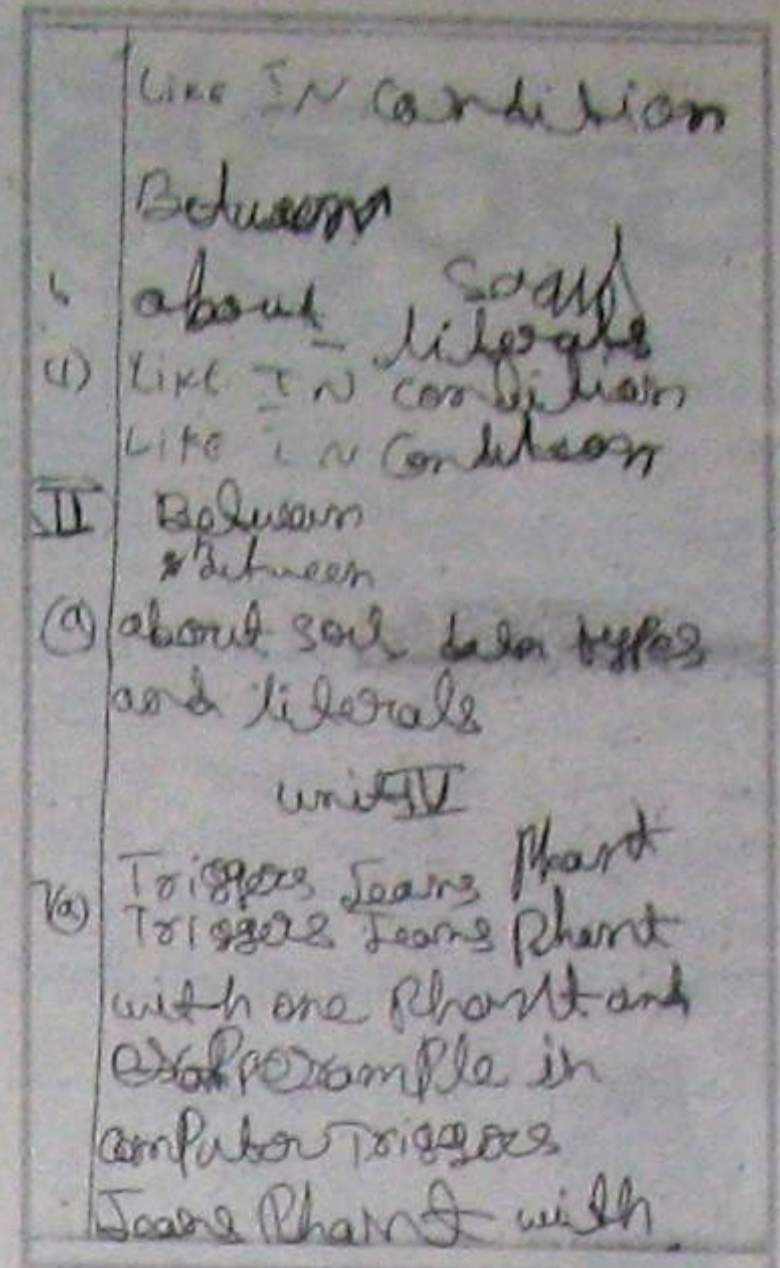 Like IN Condition
Between
about soqul
literals
Like IN condition
Like IN Condition
II Between
Between
(a) about soil data types
and literals
unit IV
Triggers Jeans Phant
7(a) Triggers Jeans Phant
with one Phant and
example in
computer Triggers
Jeans Phant with